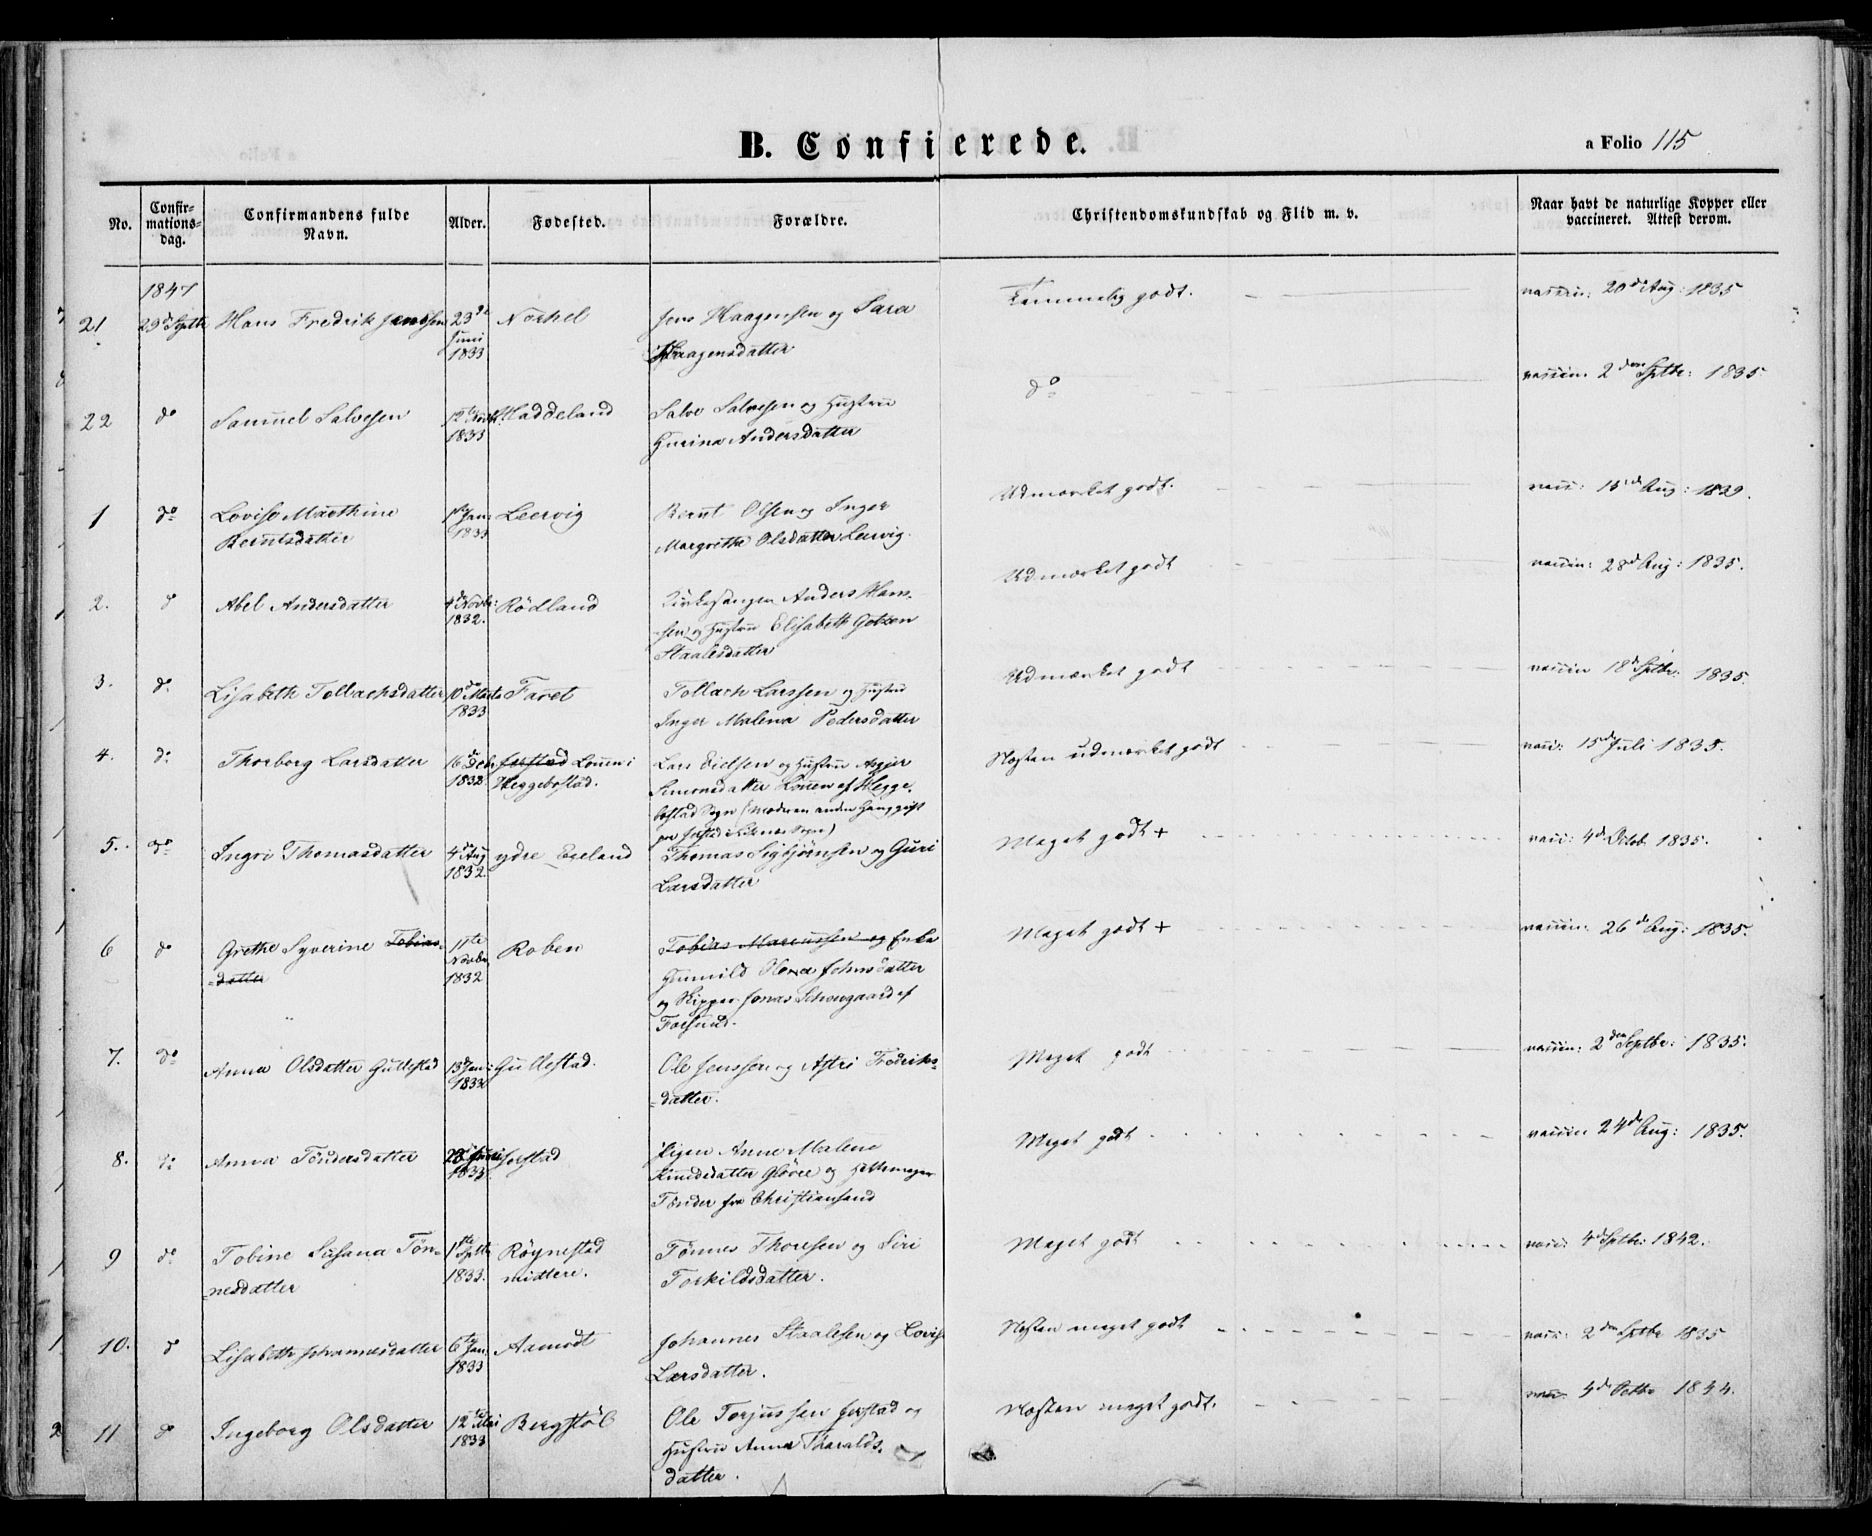 B. Confirerede.
a Folio 115
No.
Confir-
mations-
dag.
Confirmandens fulde
Navn.
Alder.
Fødested.
Forældre.
Christendomskundskab og Flid m. v.
Naar havt de naturlige Kopper eller
vaccineret. Attest derom.
1847
21 29d Septb Hans Fredrik Jensen 23de Juni 1833
Jens Haagensen og Sara
Haagensdatter
Temmelig godt.
20de Aug: 1835
22 do Samuel Salvesen 1833 Haddeland
Salve Salvesen og Hustru
Gurina Andersdatter
do
vaccin: 2den Septbr: 1835
1 do Lovise Marthine
Berntsdatter
1ste Jan 1833 Leervig
Bernt Olsen og Inger
Margrethe Olsdatter Leervig.
Udmærket godt.
vacc: 15de Aug: 1839.
2. do Abel Andersdatter 4d Novbr: 1832. Rödland
Kirkesanger Anders Han-
sen og Hustru Elisabeth
Staalesdatter
Udmærket godt
vaccin: 28d Aug: 1835.
3. do Lisabeth Tollachsdatter 10d Marts 1833 Faret
Tollach Larssen og Hustru
Inger Malena Pedersdatter
Udmærket godt
vaccin 18d Septbr: 1835.
4. do Thorborg Larsdatter 16d Debr 1832 Jerstad Louen i
Heggebostad.
Lars Eielsen og Hustru Asgjer
Simonsdatter Louen af Hegge-
bostad Sogn (Moderen anden Gang gift
paa Jerstad i Sogn)
Næsten udmærket godt
vacc: 15d Juli 1835.
5. do Ingri Thomasdatter 4d Aug 1832. ydre Egeland
Thomas Sigbjørnsen og Guri
Larsdatter
Meget godt +
vacc: 4d Octob 1835.
6 do Grethe Syverine Tobias-
datter
11te Novbr 1832 Roben
Tobias Marcussen og Enke
Gunnild Johnsdatter
og Skipper Jonas af
Farsund.
Meget godt +
vaccin: 26d Aug: 1835.
7. do Anna Olsdatter Gullestad 13d Jan: 1833 Gullestad.
Ole Jenssen og Astri Fredriks-
datter.
Meget godt
vaccin: 2den Septbr: 1835.
8. do Anna Töndersdatter 1833. Jerstad
Pigen Anne Malene
Knudsdatter Glövre og
Tönder fra Christiansand
Meget godt
vaccin 24d Aug: 1835.
9 do Tobine Susana Tön-
nesdatter
1ste Septb 1833. Röynestad
midtere.
Tönnes Thoresen og Siri
Torkildsdatter.
Meget godt
vacc: 4d Septbr: 1842.
10. do Lisabeth Johannesdatter 6te Jan: 1833 Aamodt
Johannes Staalesen og Lovise
Larsdatter.
Næsten meget godt
vacc: 2den Septbr 1835
11 do Ingeborg Olsdatter 12te Mai 1833 Bergstöl
Ole Torjussen Jerstad og
Hustru Anna Tharalds-
datter.
Næsten meget godt.
vacc: 4de Octbr 1844.